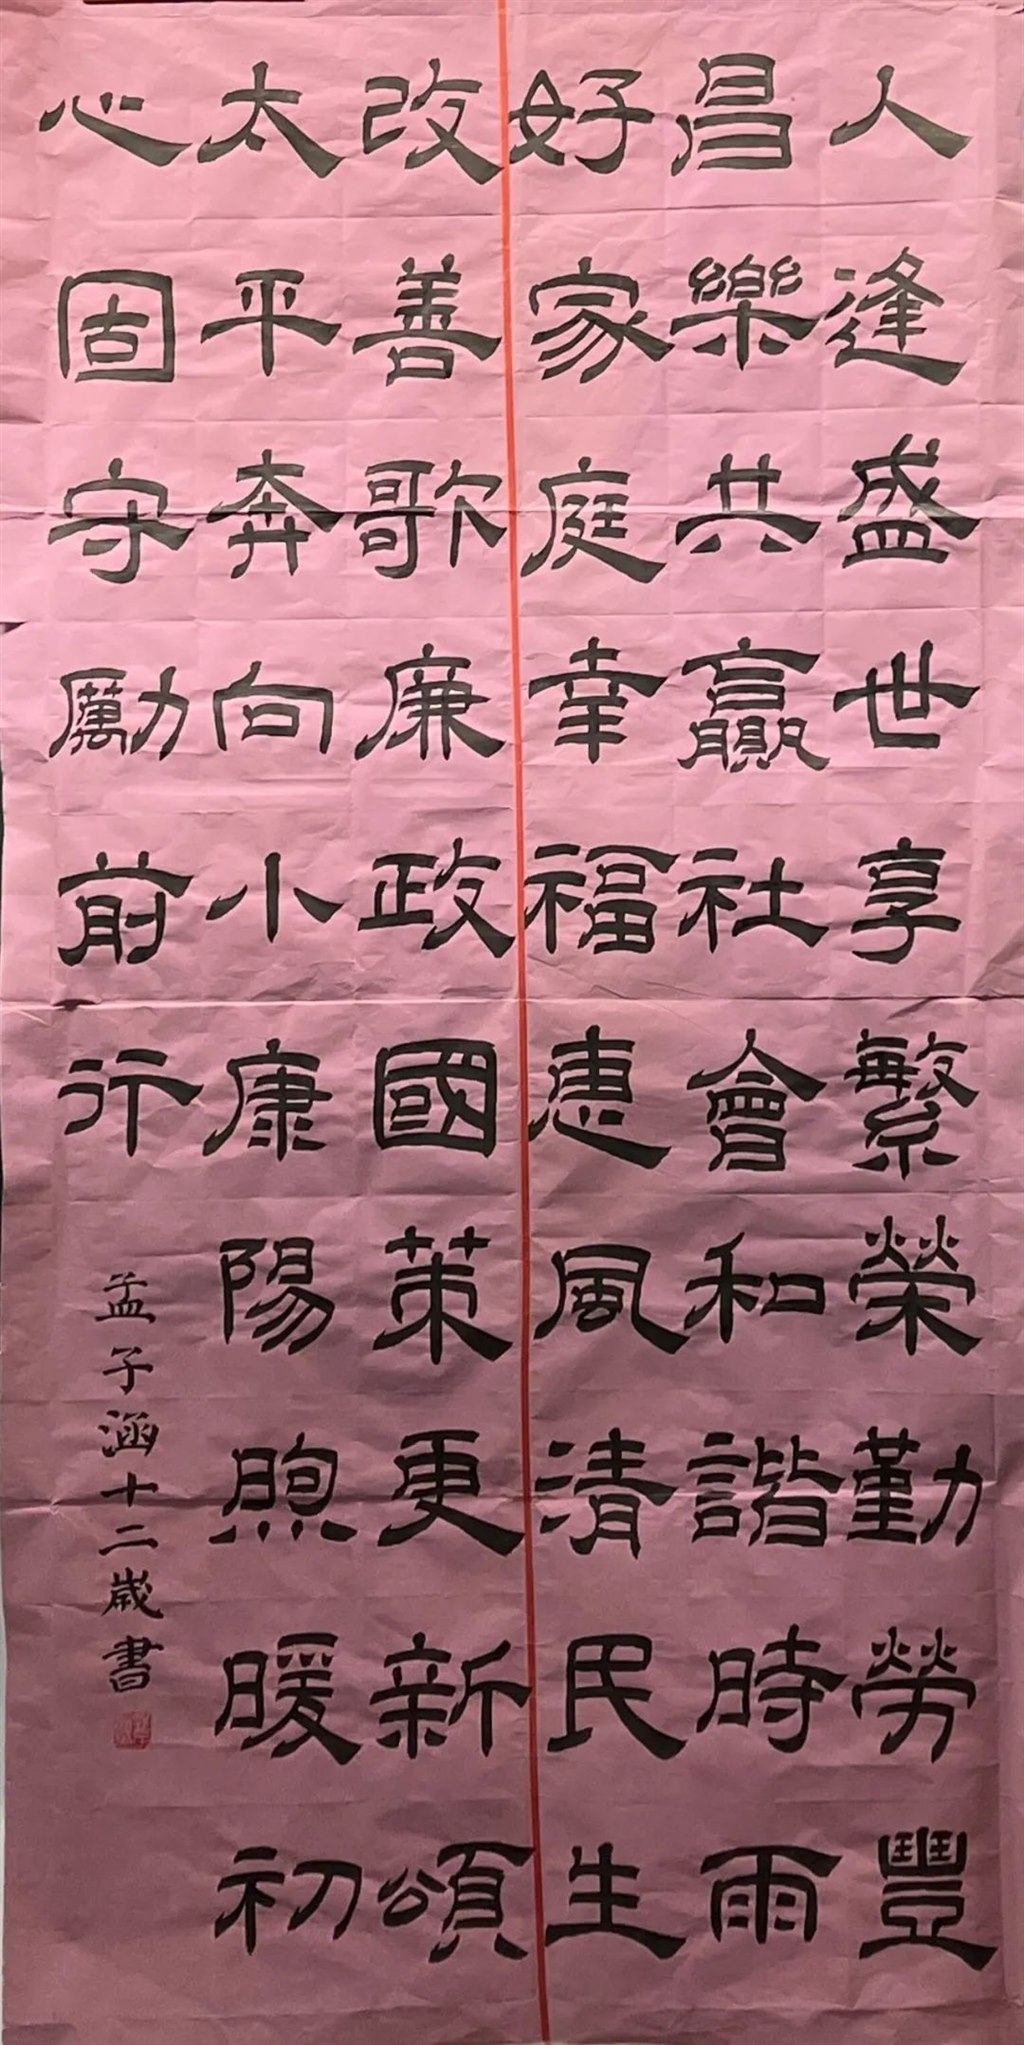 人逢盛世享繁榮勤勞豐
昌樂共贏社會和諧時雨
好家庭幸福惠風清民生
改善歌廉政國策更新頌
太平奔向小康陽煦暖初
心固守勵前行
孟子涵十二歲書